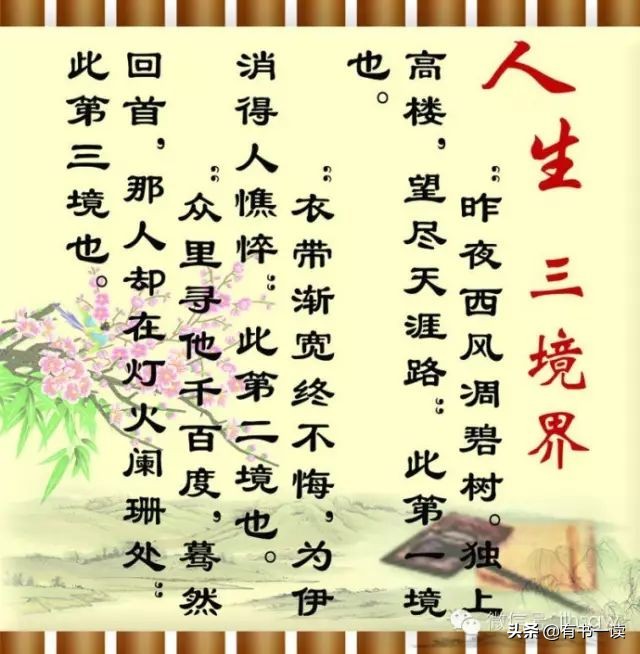 人生 三境界
“昨夜西风凋碧树。独上
高楼，望尽天涯路” 此第一境
也。
“衣带渐宽终不悔，为伊
消得人憔悴” 此第二境也。
“众里寻他千百度，蓦然
回首，那人却在灯火阑珊处”
此第三境也。
微信号:
头条 @有书一读